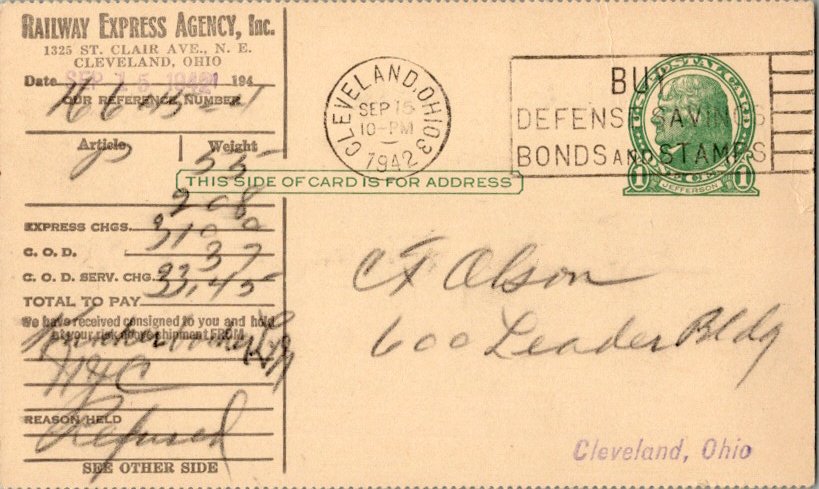 RAILWAY EXPRESS AGENCY, Inc.
1325 ST. CLAIR AVE., N. E.
CLEVELAND, OHIO
Date SEP 15 1942 194
OUR REFERENCE NUMBER
Article Weight
P 55
2 08
EXPRESS CHGS.
C. O. D. 31 00
C. O. D. SERV. CHG. 37
TOTAL TO PAY 33.45
We have received consigned to you and hold
at your risk above shipment FROM
NYC
REASON HELD
Refused
SEE OTHER SIDE
CLEVELAND, OHIO 3
SEP 15
10-PM
1942
BUY
DEFENSE SAVINGS
BONDS AND STAMPS
U.S. POSTAL CARD
1 JEFFERSON 1
THIS SIDE OF CARD IS FOR ADDRESS
C F Olson
600 Leader Bldg
Cleveland, Ohio